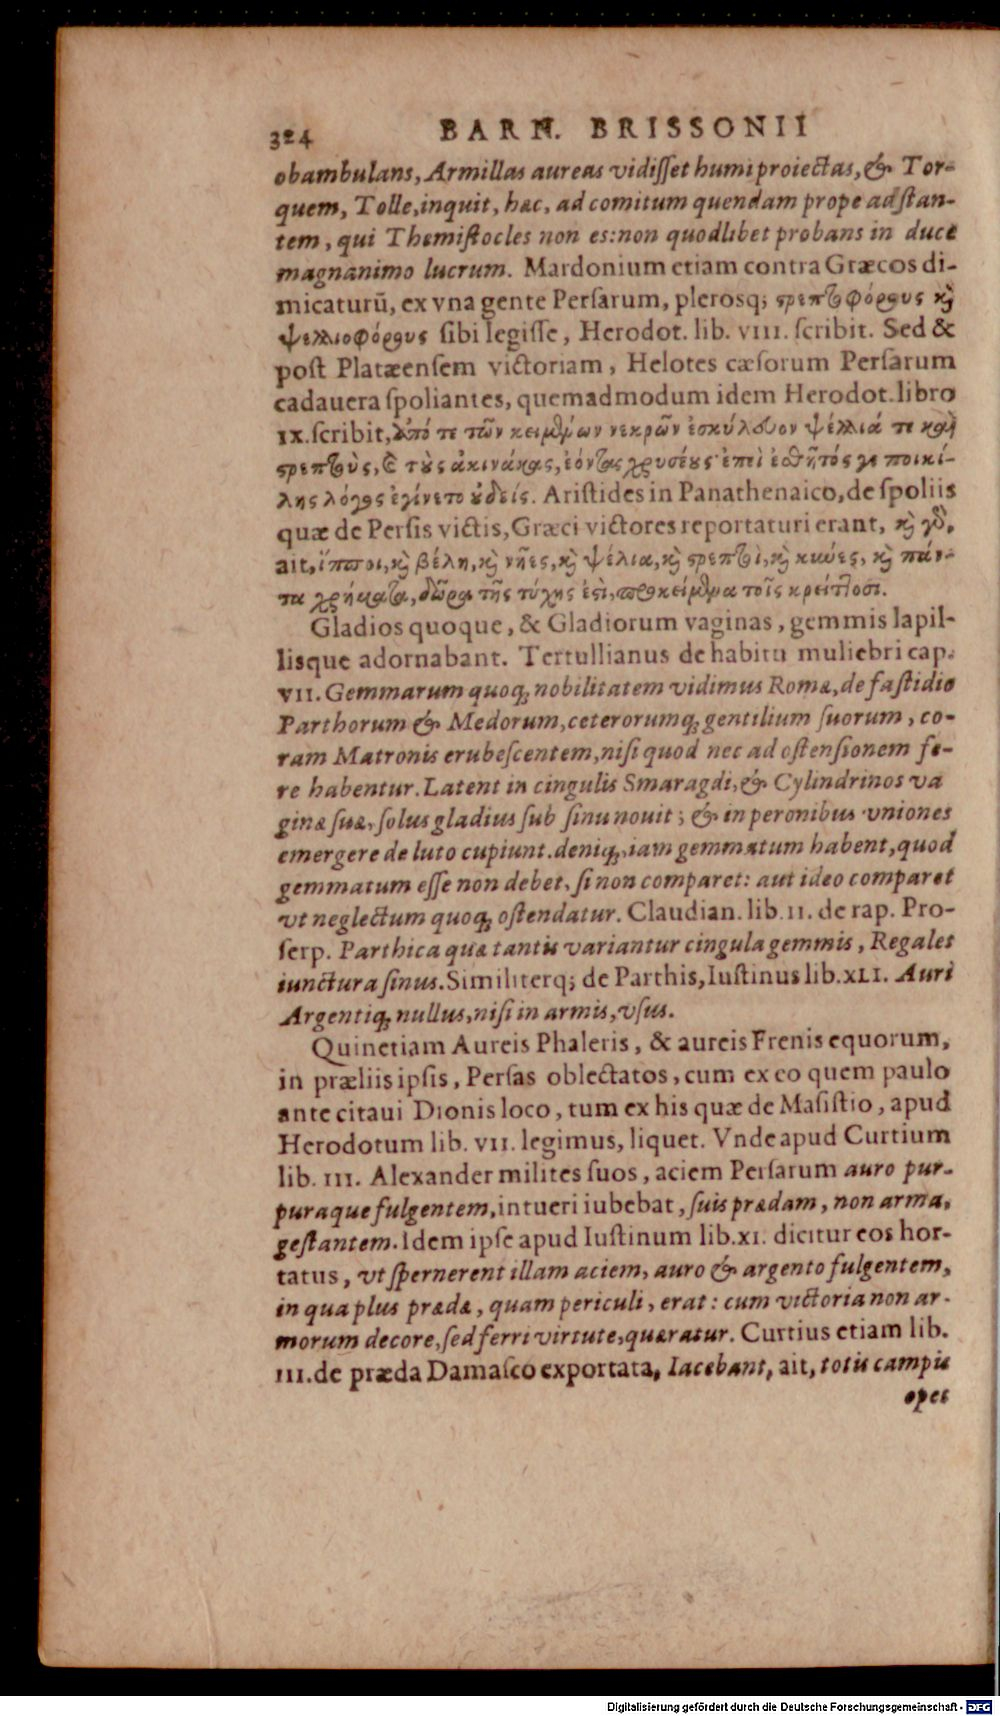 324 BARN. BRISSONII
obambulans, Armillas aureas vidiſſet humi proiectas, & Tor-
quem, Tolle, inquit, hæc, ad comitum quendam prope adſtan-
tem, qui Themiſtocles non es: non quodlibet probans in duce
magnanimo lucrum. Mardonium etiam contra Græcos di-
micaturū, ex vna gente Perſarum, plerosq; ϛρεπτοφόρους καὶ
ψελλιοφόρους sibi legiſſe, Herodot. lib. VIII. ſcribit. Sed &
poſt Platæenſem victoriam, Helotes cæſorum Perſarum
cadauera ſpoliantes, quemadmodum idem Herodot. libro
IX. ſcribit, Ἀπό τε τῶν κειμένων νεκρῶν ἐσκύλευον ψέλλιά τε καὶ
ϛρεπτοὺς, & τοὺς ἀκινάκας, ἐόντας χρυσέους· ἐπεὶ ἐσθῆτός γε ποικί-
λης λόγος ἐγίνετο οὐδείς. Ariſtides in Panathenaico, de ſpoliis
quæ de Perſis victis, Græci victores reportaturi erant, καὶ γὰρ,
ait, ἵπποι, καὶ βέλη, καὶ νῆες, καὶ ψέλια, καὶ ϛρεπτοὶ, καὶ κύνες, καὶ πάν-
τα χρήματα, δῶρα τῆς τύχης ἐϛὶ, προκείμενα τοῖς κρείττοσι.
Gladios quoque, & Gladiorum vaginas, gemmis lapil-
lisque adornabant. Tertullianus de habitu muliebri cap.
VII. Gemmarum quoq; nobilitatem vidimus Romæ, de faſtidio
Parthorum & Medorum, ceterorumq; gentilium ſuorum, co-
ram Matronis erubeſcentem, niſi quod nec ad oſtenſionem fe-
re habentur. Latent in cingulis Smaragdi, & Cylindrinos va
ginæ ſuæ, ſolus gladius ſub ſinu nouit; & in peronibus vniones
emergere de luto cupiunt. deniq; iam gemmatum habent, quod
gemmatum eſſe non debet, ſi non comparet: aut ideo comparet
vt neglectum quoq; oſtendatur. Claudian. lib. II. de rap. Pro-
ſerp. Parthica quæ tantis variantur cingula gemmis, Regales
iunctura ſinus. Similiterq; de Parthis, Iuſtinus lib. XLI. Auri
Argentiq; nullus, niſi in armis, vſus.
Quinetiam Aureis Phaleris, & aureis Frenis equorum,
in præliis ipſis, Perſas oblectatos, cum ex eo quem paulo
ante citaui Dionis loco, tum ex his quæ de Maſiſtio, apud
Herodotum lib. VII. legimus, liquet. Vnde apud Curtium
lib. III. Alexander milites ſuos, aciem Perſarum auro pur-
puraque fulgentem, intueri iubebat, ſuis prædam, non arma,
geſtantem. Idem ipſe apud Iuſtinum lib. XI. dicitur eos hor-
tatus, vt ſpernerent illam aciem, auro & argento fulgentem,
in qua plus prædæ, quam periculi, erat: cum victoria non ar-
morum decore, ſed ferri virtute, quæratur. Curtius etiam lib.
III. de præda Damaſco exportata, Iacebant, ait, totis campis
opes
Digitalisierung gefördert durch die Deutsche Forschungsgemeinschaft - DFG